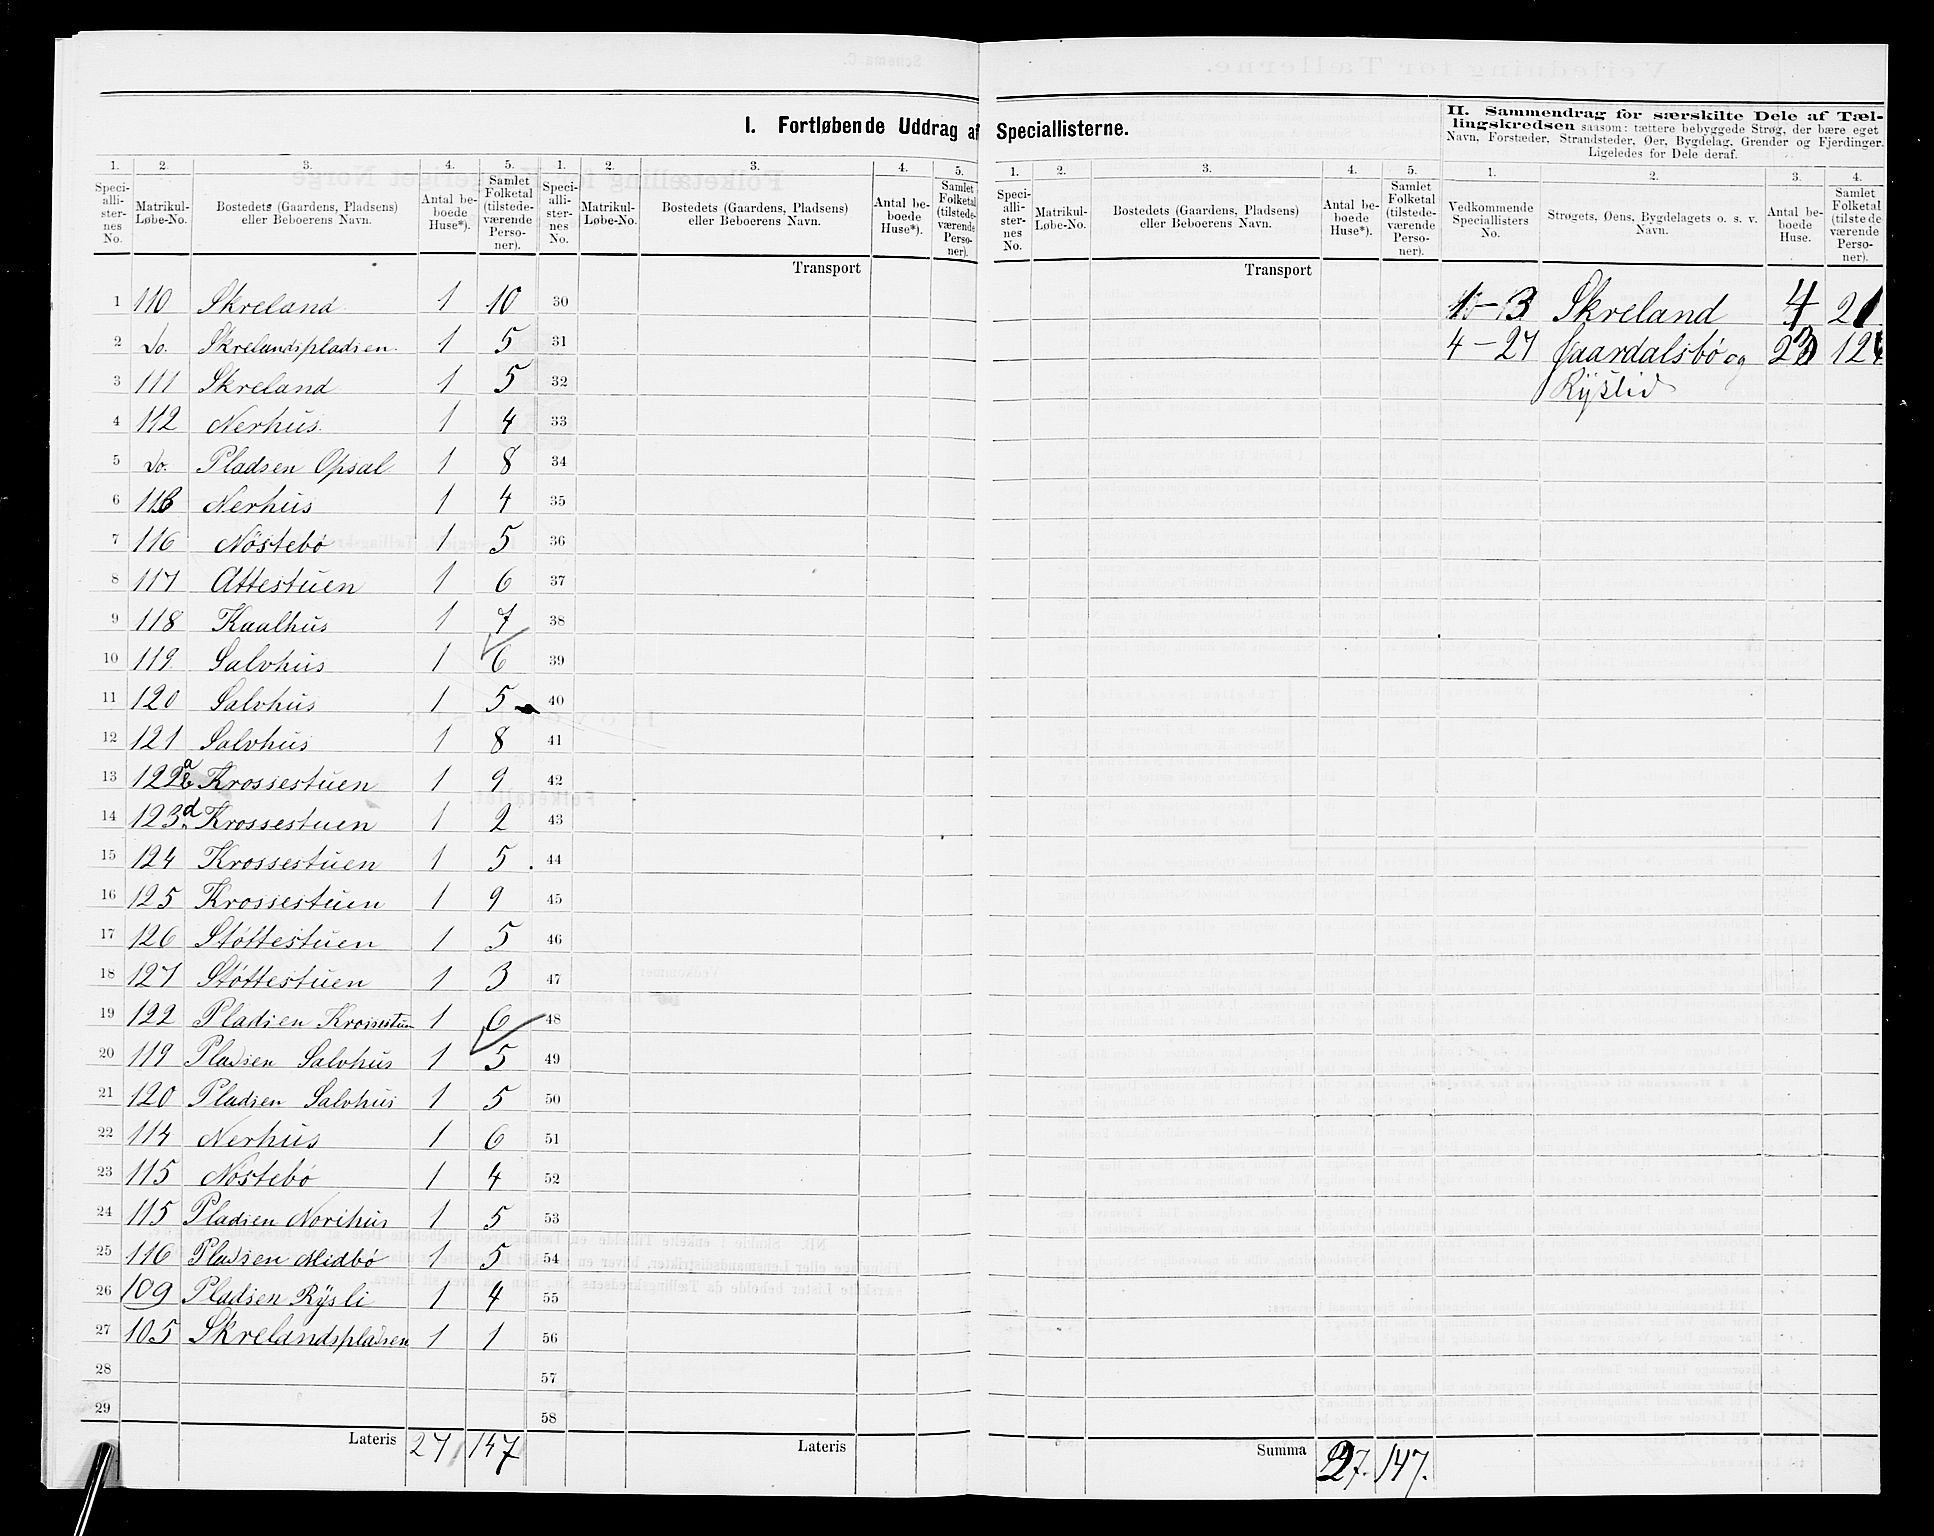 I. Fortløbende Uddrag af Speciallisterne.
II. Sammendrag for særskilte Dele af Tæl-
lingskredsen saasom: tættere bebyggede Strøg, der bære eget
Navn, Forstæder, Strandsteder, Øer, Bygdelag, Grender og Fjerdinger.
Ligeledes for Dele deraf.
1. 2. 3. 4. 5. 1. 2. 3. 4. 5. 1. 2. 3. 4. 5. 1. 2. 3. 4.
Speci-
alli-
ster-
nes
No.
Matrikul-
Løbe-No.
Bostedets (Gaardens, Pladsens)
eller Beboerens Navn.
Antal be-
boede
Huse*).
Samlet
Folketal
(tilstede-
værende
Perso-
ner).
Speci-
alli-
ster-
nes
No.
Matrikul-
Løbe-No.
Bostedets (Gaardens, Pladsens)
eller Beboerens Navn.
Antal be-
boede
Huse*).
Samlet
Folketal
(tilstede-
værende
Perso-
ner).
Speci-
alli-
ster-
nes
No.
Matrikul-
Løbe-No.
Bostedets (Gaardens, Pladsens)
eller Beboerens Navn.
Antal be-
boede
Huse*).
Samlet
Folketal
(tilstede-
værende
Perso-
ner).
Vedkommende
Speciallisters
No.
Strøgets, Øens, Bygdelagets o. s. v.
Navn.
Antal be-
boede
Huse.
Samlet
Folketal
(tilstede-
værende
Perso-
ner).
Transport Transport
1 110 Skreland 1 10 30 1-3 Skreland 4 21
2 do. Skrelandspladsen 1 5 31 4-27 Gaardalsbø og 23
3 111 Skreland 1 5 32 Rÿslid
4 112 Nerhus 1 4 33
5 do. Pladsen Opsal 1 8 34
6 113 Nerhus 1 4 35
7 116 Nöstebö 1 5 36
8 117 Attestuen 1 6 37
9 118 Kaalhus 1 7 38
10 119 Salvhus 1 6 39
11 120 Salvhus 1 5 40
12 121 Salvhus 1 8 41
13 122 a Krossestuen 1 9 42
14 123 d Krossestuen 1 2 43
15 124 Krossestuen 1 5 44
16 125 Krossestuen 1 9 45
17 126 Støttestuen 1 5 46
18 127 Støttestuen 1 3 47
19 122 Pladsen Krossestuen 1 6 48
20 119 Pladsen Salvhus 1 5 49
21 120 Pladsen Salvhus 1 5 50
22 114 Nerhus 1 6 51
23 115 Nöstebö 1 4 52
24 115 Pladsen Norihus 1 5 53
25 116 Pladsen Midbö 1 5 54
26 109 Pladsen Rÿsli 1 4 55
27 105 Skrelandspladsen 1 1 56
28 57
29 58
Lateris 27 147 Lateris Summa 27. 147.